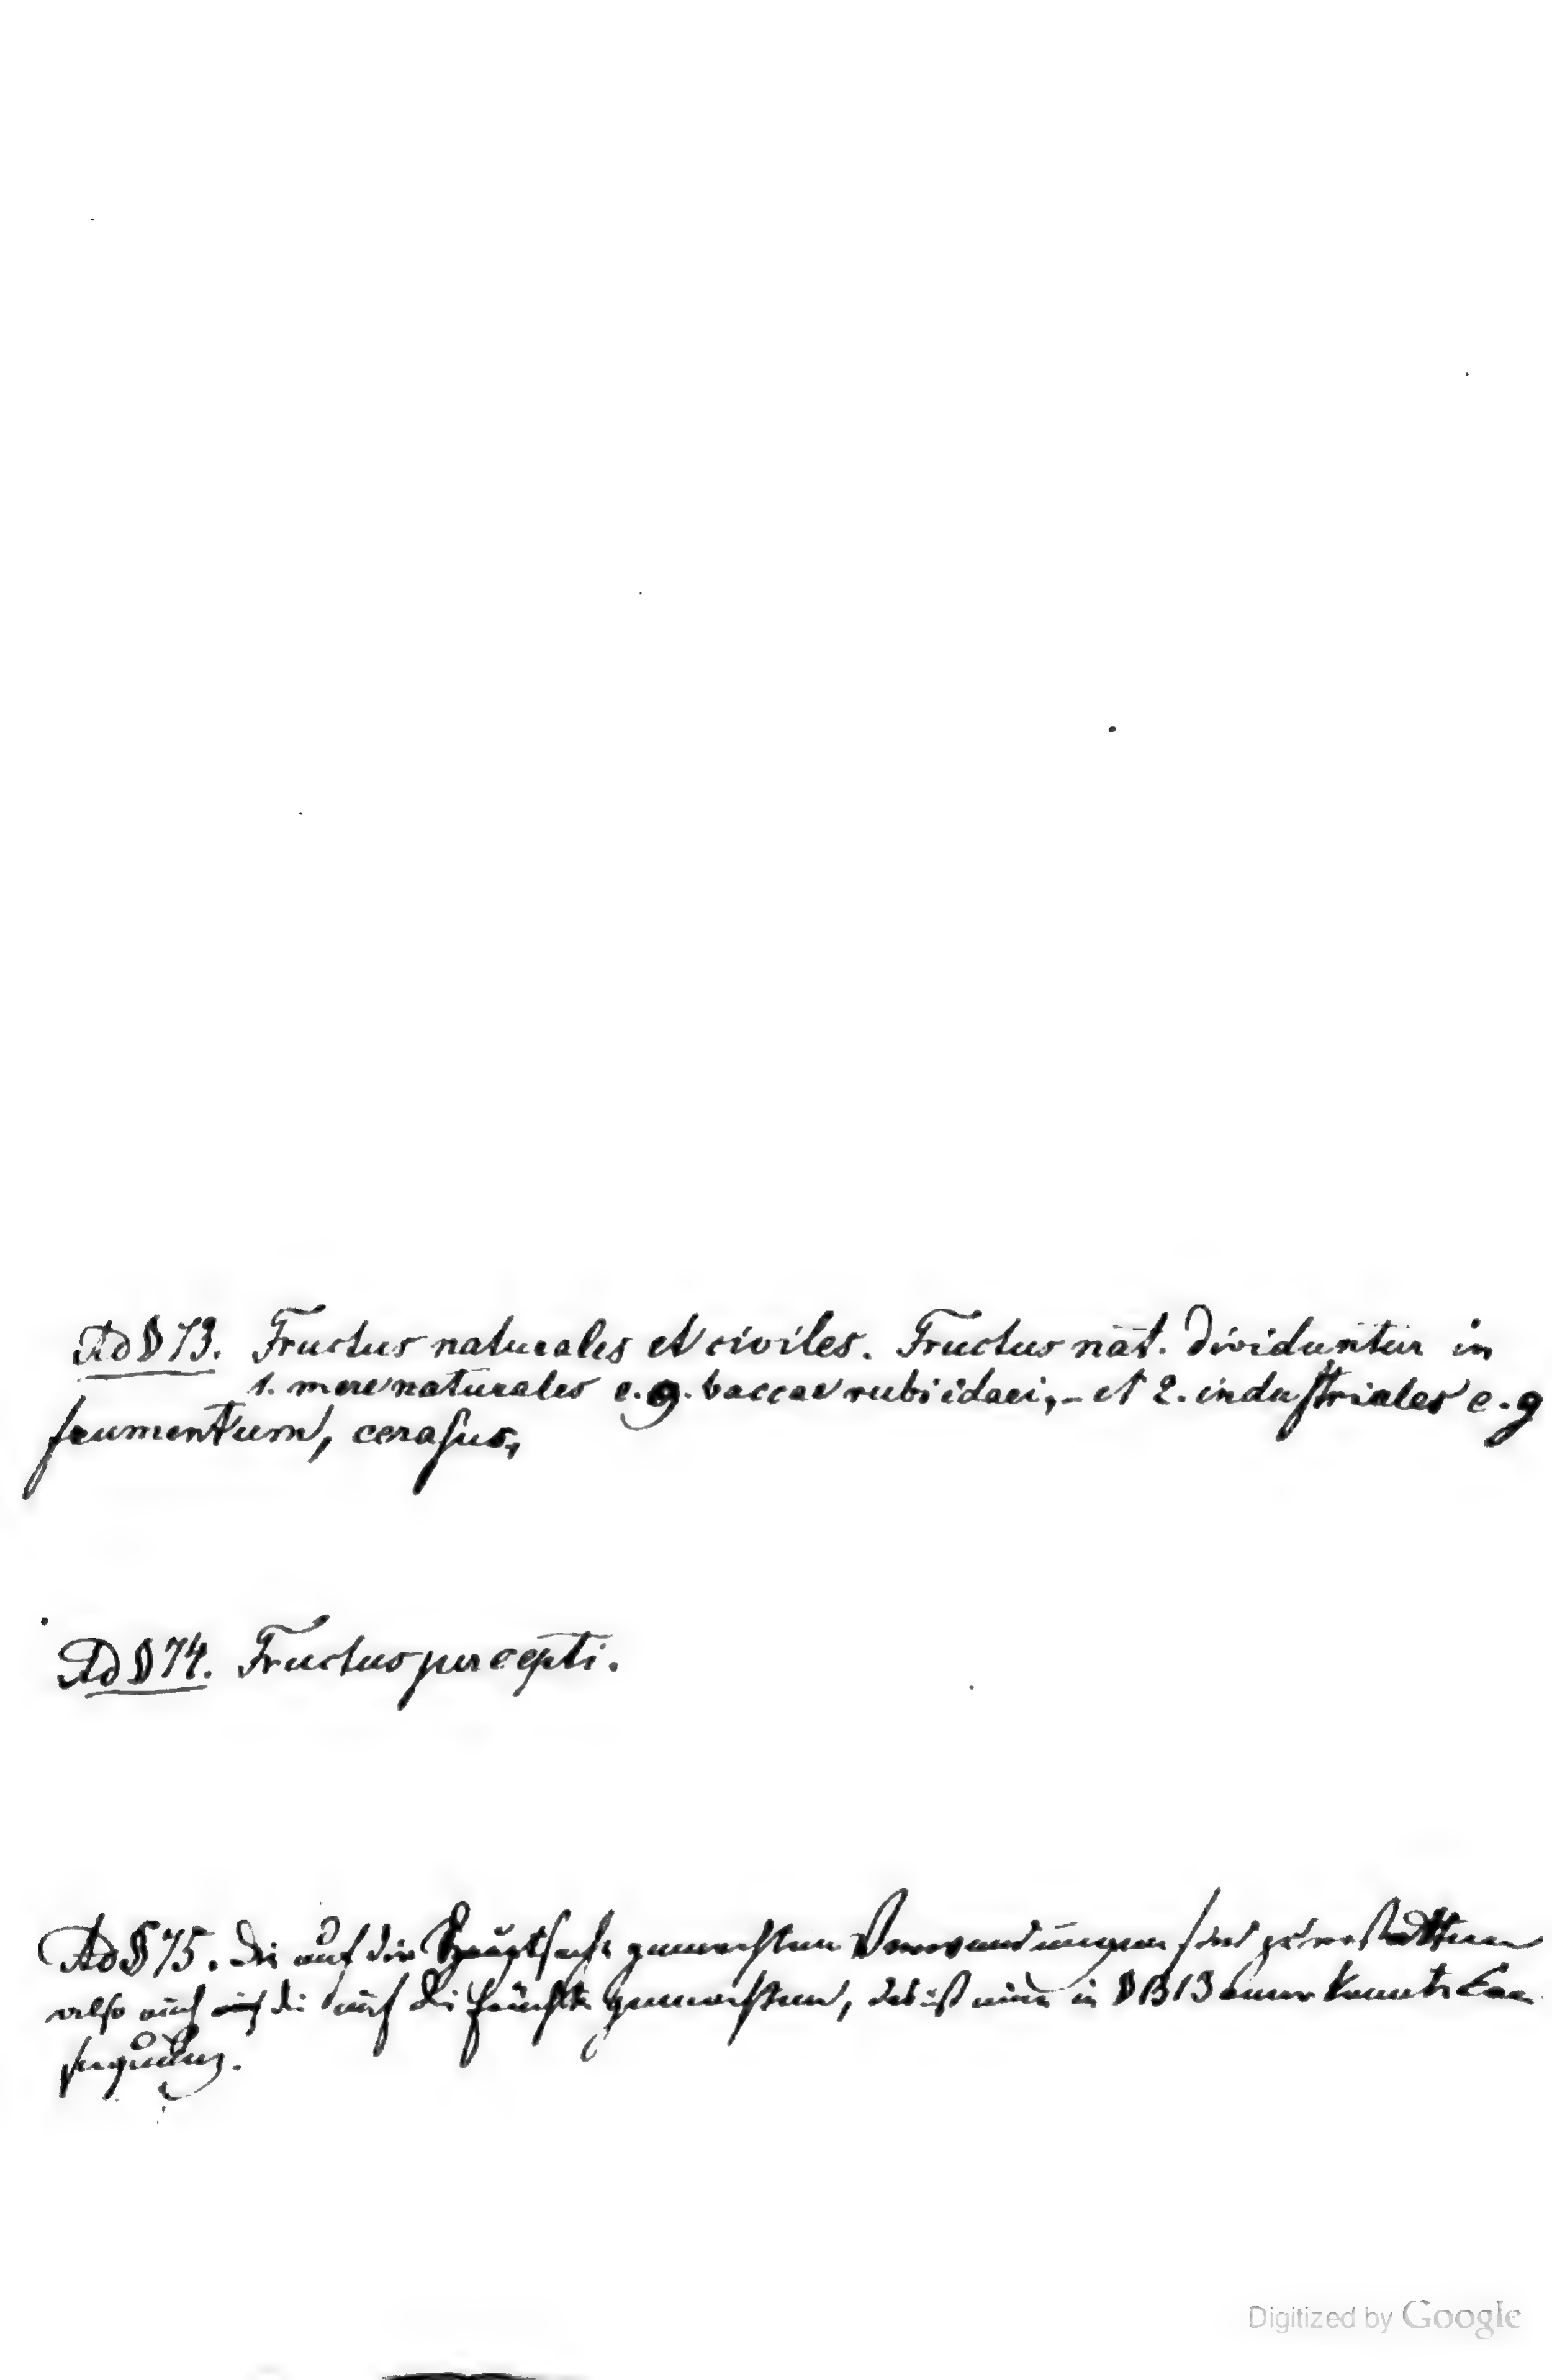 Ad § 73. Fructus naturales et civiles. Fructus nat. dividuntur in
1. mere naturales e. g. baccae rubi idaei, - et 2. industriales e. g
frumentum, cerasus,
Ad § 74. Fructus percepti.
Ad § 75. Die auf die Hauptsache gemachten Verwendungen sind zu erstatten
also auch die auf die Früchte gemachten, das ist eine in § 1313 anerkannte Con
sequenz.
Digitized by Google